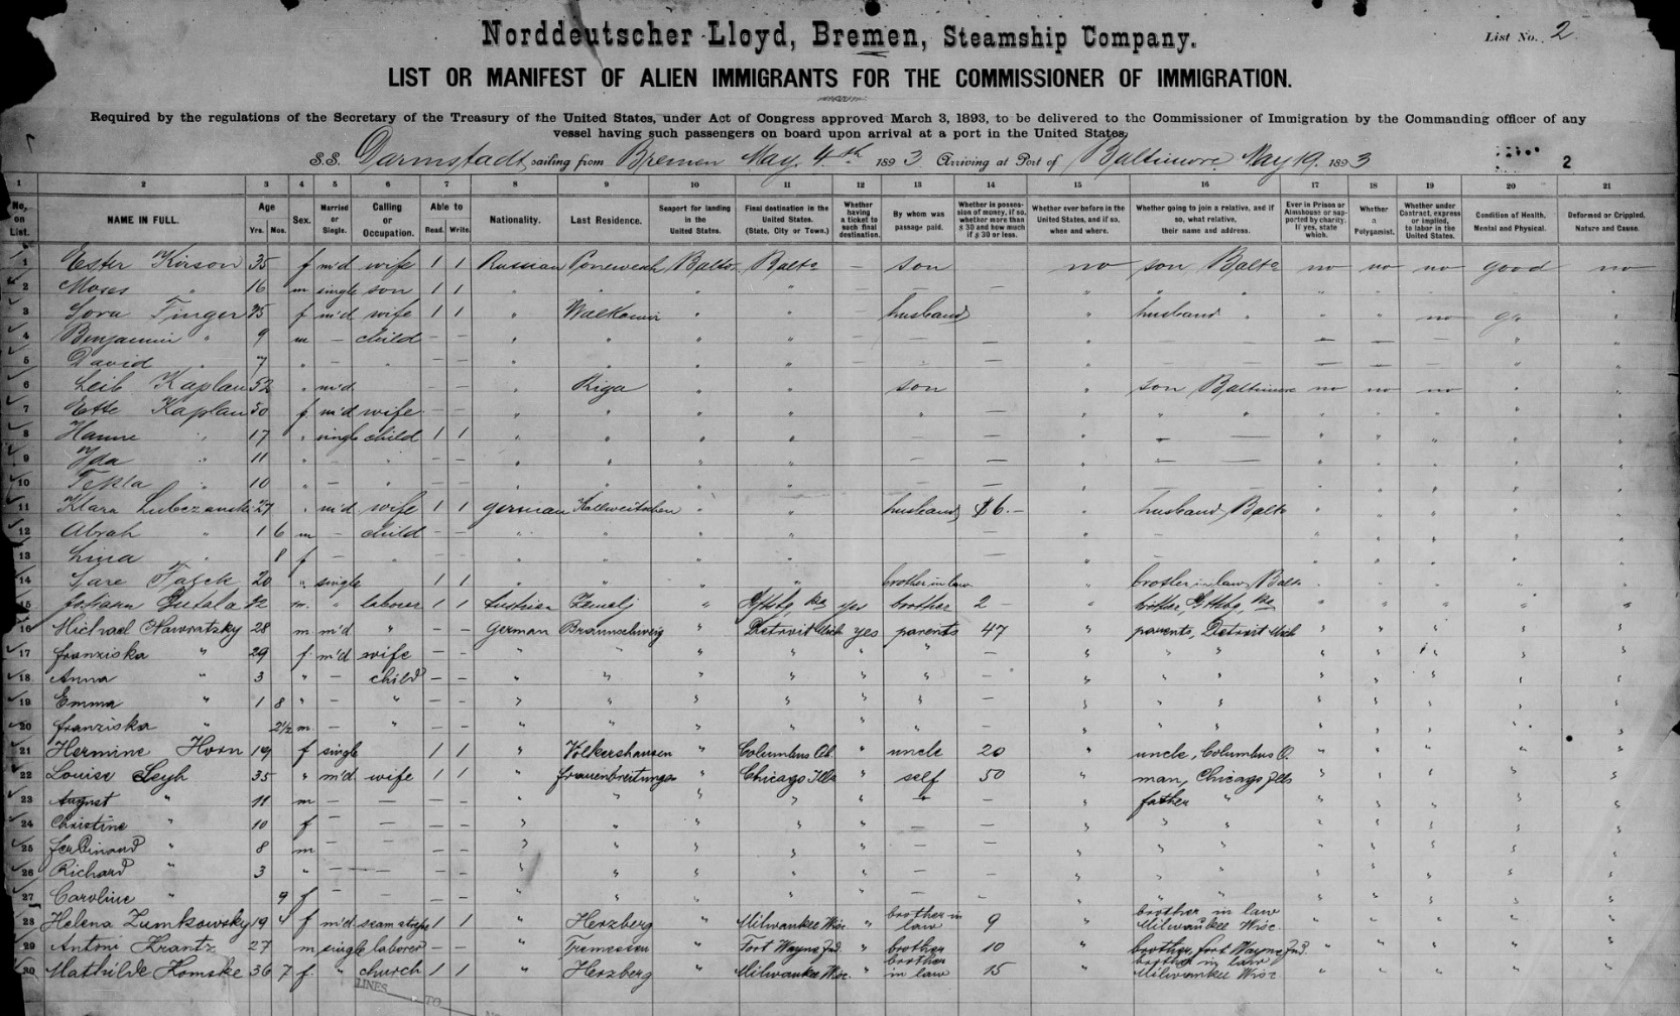 Norddeutscher Lloyd, Bremen, Steamship Company.
List No. 2
LIST OR MANIFEST OF ALIEN IMMIGRANTS FOR THE COMMISSIONER OF IMMIGRATION.
Required by the regulations of the Secretary of the Treasury of the United States, under Act of Congress approved March 3, 1893, to be delivered to the Commissioner of Immigration by the Commanding officer of any
vessel having such passengers on board upon arrival at a port in the United States.
S.S. Darmstadt, sailing from Bremen May, 4th 1893 Arriving at Port of Baltimore May 19. 1893 2
1 2 3 4 5 6 7 8 9 10 11 12 13 14 15 16 17 18 19 20 21
No. on List. NAME IN FULL. Age Yrs. Mos. Sex. Married or Single. Calling or Occupation. Able to Read. Write. Nationality. Last Residence. Seaport for landing in the United States. Final destination in the United States. (State, City or Town.) Whether having a ticket to such final destination. By whom was passage paid. Whether in possession of money, if so, whether more than $30 and how much if $30 or less. Whether ever before in the United States, and if so, when and where. Whether going to join a relative, and if so, what relative, their name and address. Ever in Prison or Almshouse or supported by charity. If yes, state which. Whether a Polygamist. Whether under Contract, express or implied, to labor in the United States. Condition of Health, Mental and Physical. Deformed or Crippled, Nature and Cause.
1 Ester Kirson 35 f m'd wife 1 1 Russian Balto Balto — son no son Balto no no no good no
2 Moses " 16 m single son 1 1 " " " " — " " " " " " " "
3 Sora Finger f m'd wife 1 1 " " " — husband " husband " " " no "
4 Benjamin " 9 m — child — — " " " " — — — " — — — — " "
5 David " 7 " — " — — " " " " — — — " — — — — " "
6 Leib Kaplan 52 " m'd — — " Riga " " — son " son Baltimore no no no " "
7 Ette Kaplan 50 f m'd wife — — " " " " " — " " " " " " " "
8 Hanne " 17 " single child 1 1 " " " " — — " — — " " " " "
9 Ida " 11 " — " — — " " " " — — " — — " " " " "
10 Tekla " 10 " — " — — " " " " — — " — — " " " " "
11 Klara 27 " m'd wife 1 1 german " " husband $6.— " husband, Balto " " " " "
12 Abrah " 1 6 m — child — — " " " " — " — " " " " "
13 Lina " 8 f — — — " " " " — " — " " " " "
14 20 " single 1 1 " " " " brother in law " brother in law Balto " " " " "
15 m. " laborer 1 1 Austrian " yes brother 2 — " brother, " " " " "
16 Michael Nawratzky 28 m m'd " — — German Braunschweig " Detroit Mich yes parents 47 " parents, Detroit Mich " " " " "
17 franziska " 29 f m'd wife — — " " " " " " — " " " " " " " "
18 Anna " 3 " — child — — " " " " " " — " " " " " " " "
19 Emma " 1 8 " — " — — " " " " " " — " " " " " " " "
20 franziska " 2½ m — " — — " " " " " " — " " " " " " " "
21 Hermine Horn 19 f single 1 1 " Völkershausen " Columbus Oh. " uncle 20 " uncle, Columbus O. " " " " "
22 Louise Leyh 35 " m'd wife 1 1 " frauenbreitungen " Chicago Ills " self 50 " man, Chicago Ills " " " " "
23 August " 11 m — — — — " " " " " " — " father " " " " " "
24 Christine " 10 f — — — — " " " " — — — " " " " " " " "
25 ferdinand " 8 m — — — — " " " " — — — " " " " " " " "
26 Richard " 3 " — — — — " " " " — — — " " " " " " " "
27 Caroline " 9 f — — — — " " " " — — — " " " " " " " "
28 Helena Zumkowsky 19 4 f m'd 1 1 " Herzberg " Milwaukee Wisc " brother in law 9 " brother in law Milwaukee Wisc " " " " "
29 Antoni Krantz 27 m single laborer — — " Tremessen " Fort Wayne Ind. " brother 10 " brother, fort Wayne Ind. " " " " "
30 Mathilde Homske 36 7 f " church 1 1 " Herzberg " Milwaukee Wisc " brother in law 15 " brother in law Milwaukee Wisc " " " " "
LINES TO